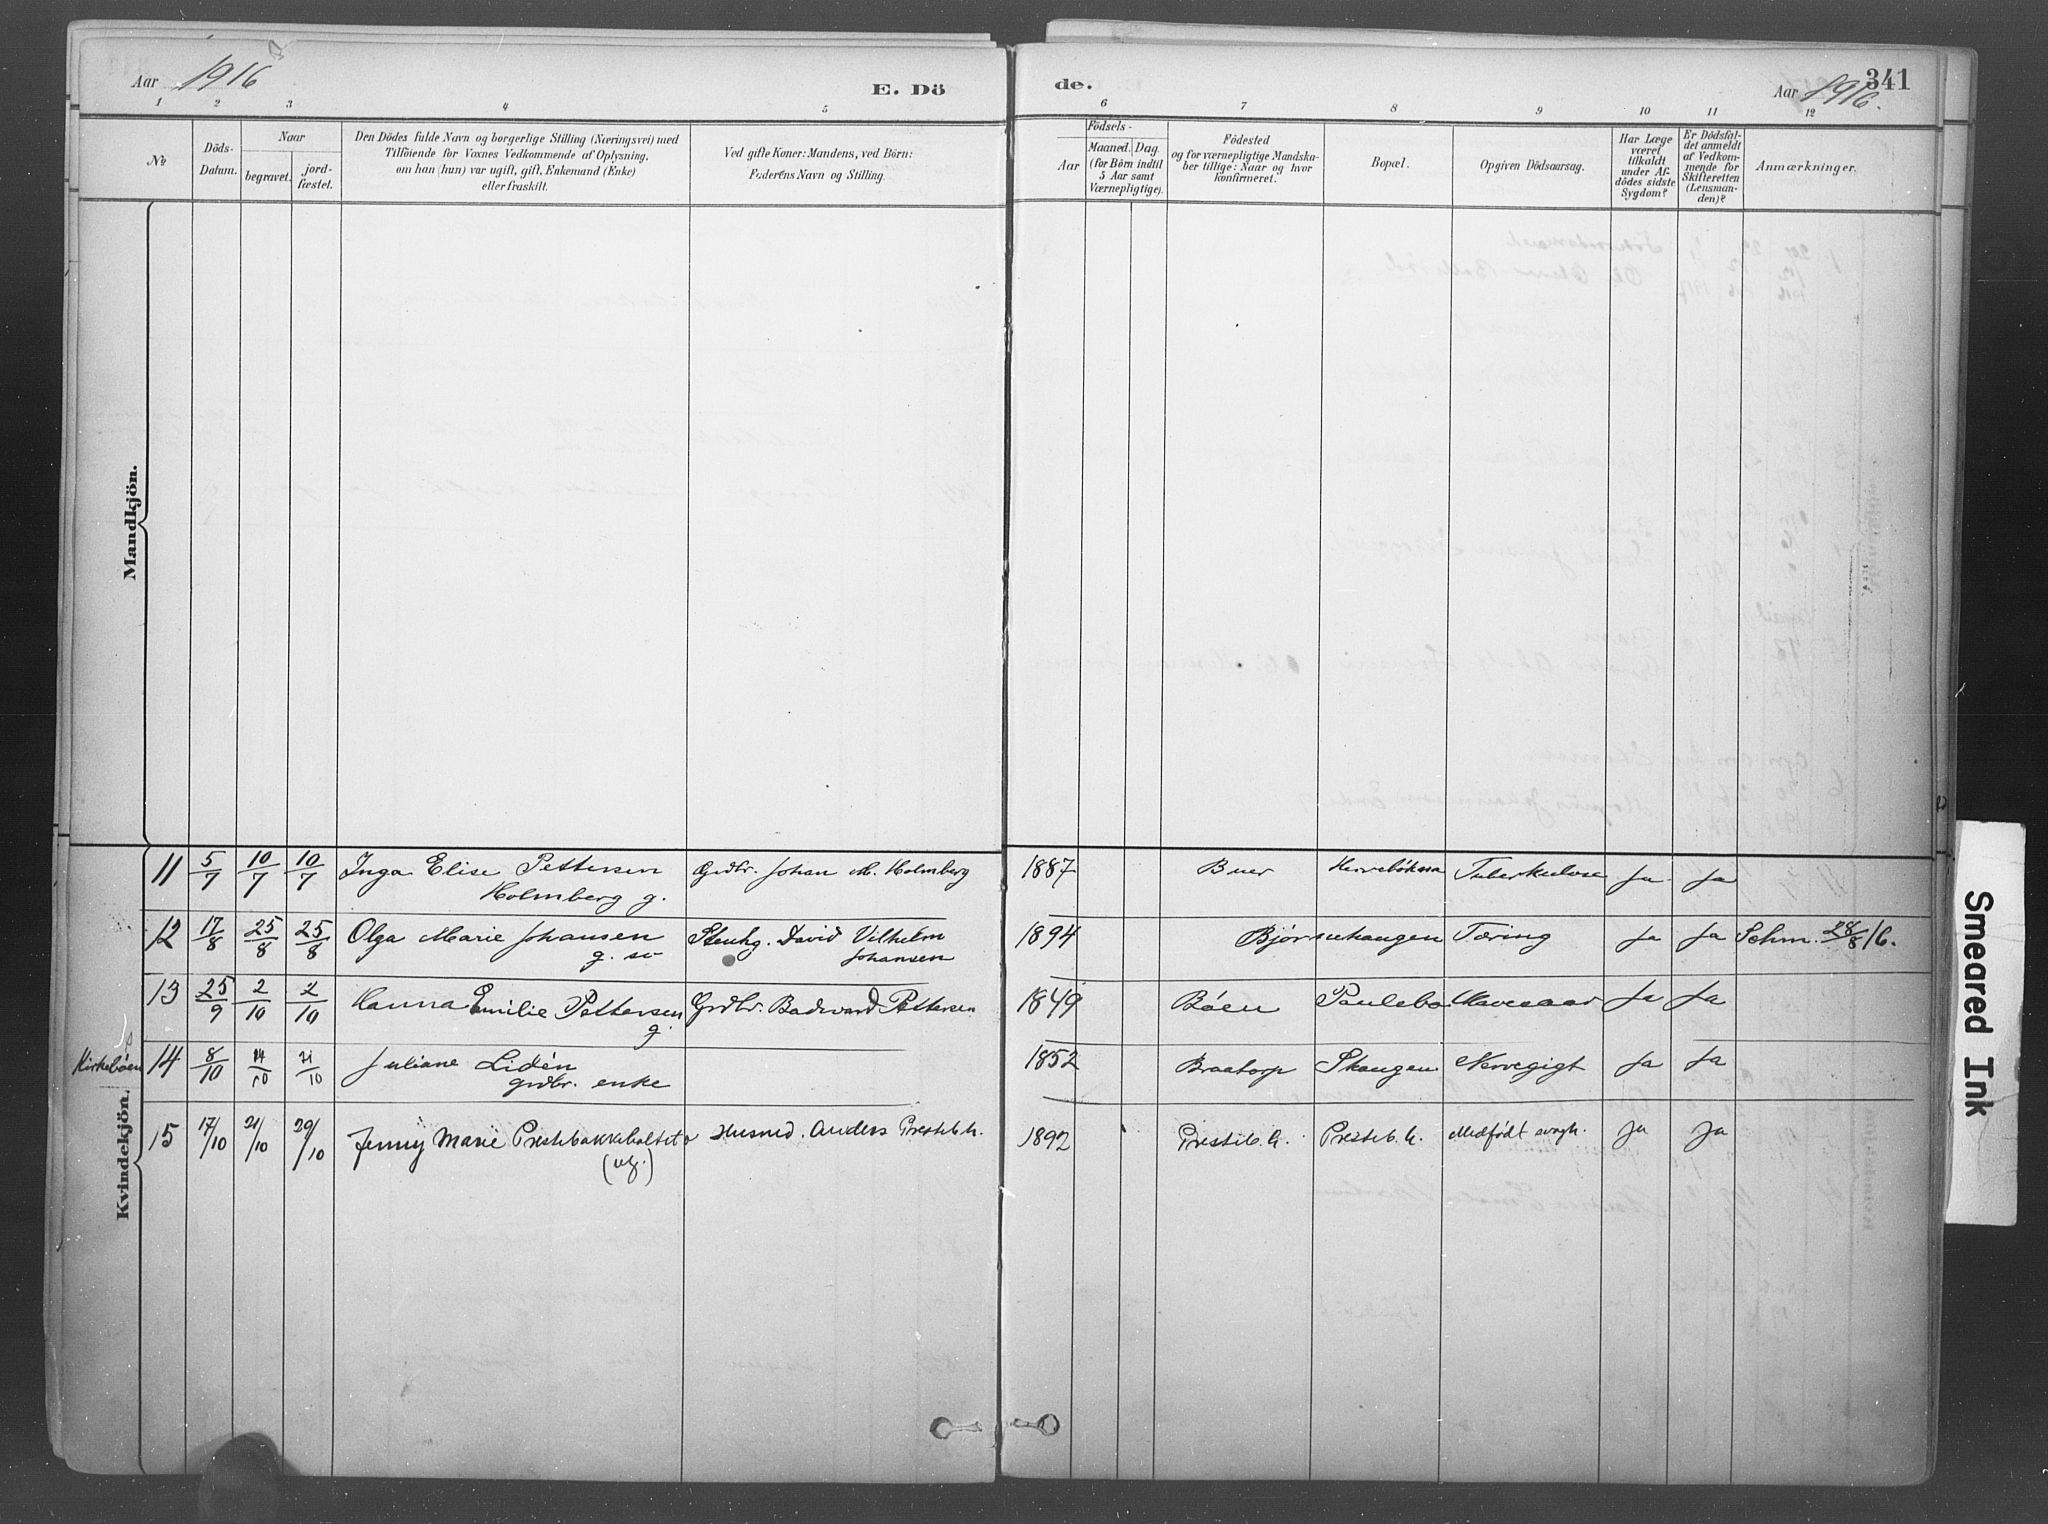 Aar 1916
E. Dö
de.
Aar 1916.
341
1 2 3 4 5
6 7 8 9 10 11 12
No
Döds-
Datum.
Naar
begravet.
jord-
fæstet.
Den Dödes fulde Navn og borgerlige Stilling (Næringsvei) med
Tilföiende for Voxnes Vedkommende af Oplysning,
om han (hun) var ugift, gift, Enkemand (Enke)
eller fraskilt.
Ved gifte Koner: Mandens, ved Börn:
Faderens Navn og Stilling.
Födsels-
Aar
Maaned.
Dag.
(for Börn indtil
5 Aar samt
Værnepligtige).
Födested
og for værnepligtige Mandska-
ber tillige: Naar og hvor
konfirmeret.
Bopæl.
Opgiven Dödsaarsag.
Har Læge
været
tilkaldt
under Af-
dödes sidste
Sygdom?
Er Dödsfal-
det anmeldt
af Vedkom-
mende for
Skifteretten
(Lensman-
den)?
Anmærkninger.
Mandkjön.
11 5/7 10/7 10/7 Inga Elise Pettersen Grdbr. Johan M. Holmberg 1887 Buer Herrebøkasa Tuberkulose Ja Ja
Holmberg g.
12 17/8 25/8 25/8 Olga Marie Johansen Stenhg. David Vilhelm 1894 Bjørnehaugen Tæring Ja Ja Schm. 28/8 16.
g. Johansen
13 25/9 2/10 2/10 Hanna Emilie Pettersen Grdbr. Badvard Pettersen 1849 Bøen Paulebo Mavesaar Ja Ja
g.
Kirkebøen 14 8/10 14/10 21/10 Juliane Lidén 1852 Braatorp Skaugen Nervegigt Ja Ja
grdbr. enke
15 17/10 21/10 29/10 Jenny Marie Prestebakkeholtet Husmd. Anders Presteb.h. 1892 Presteb.h. Presteb.h. Medfødt svagh. Ja Ja
(ug.)
Kvindekjön.
Smeared Ink